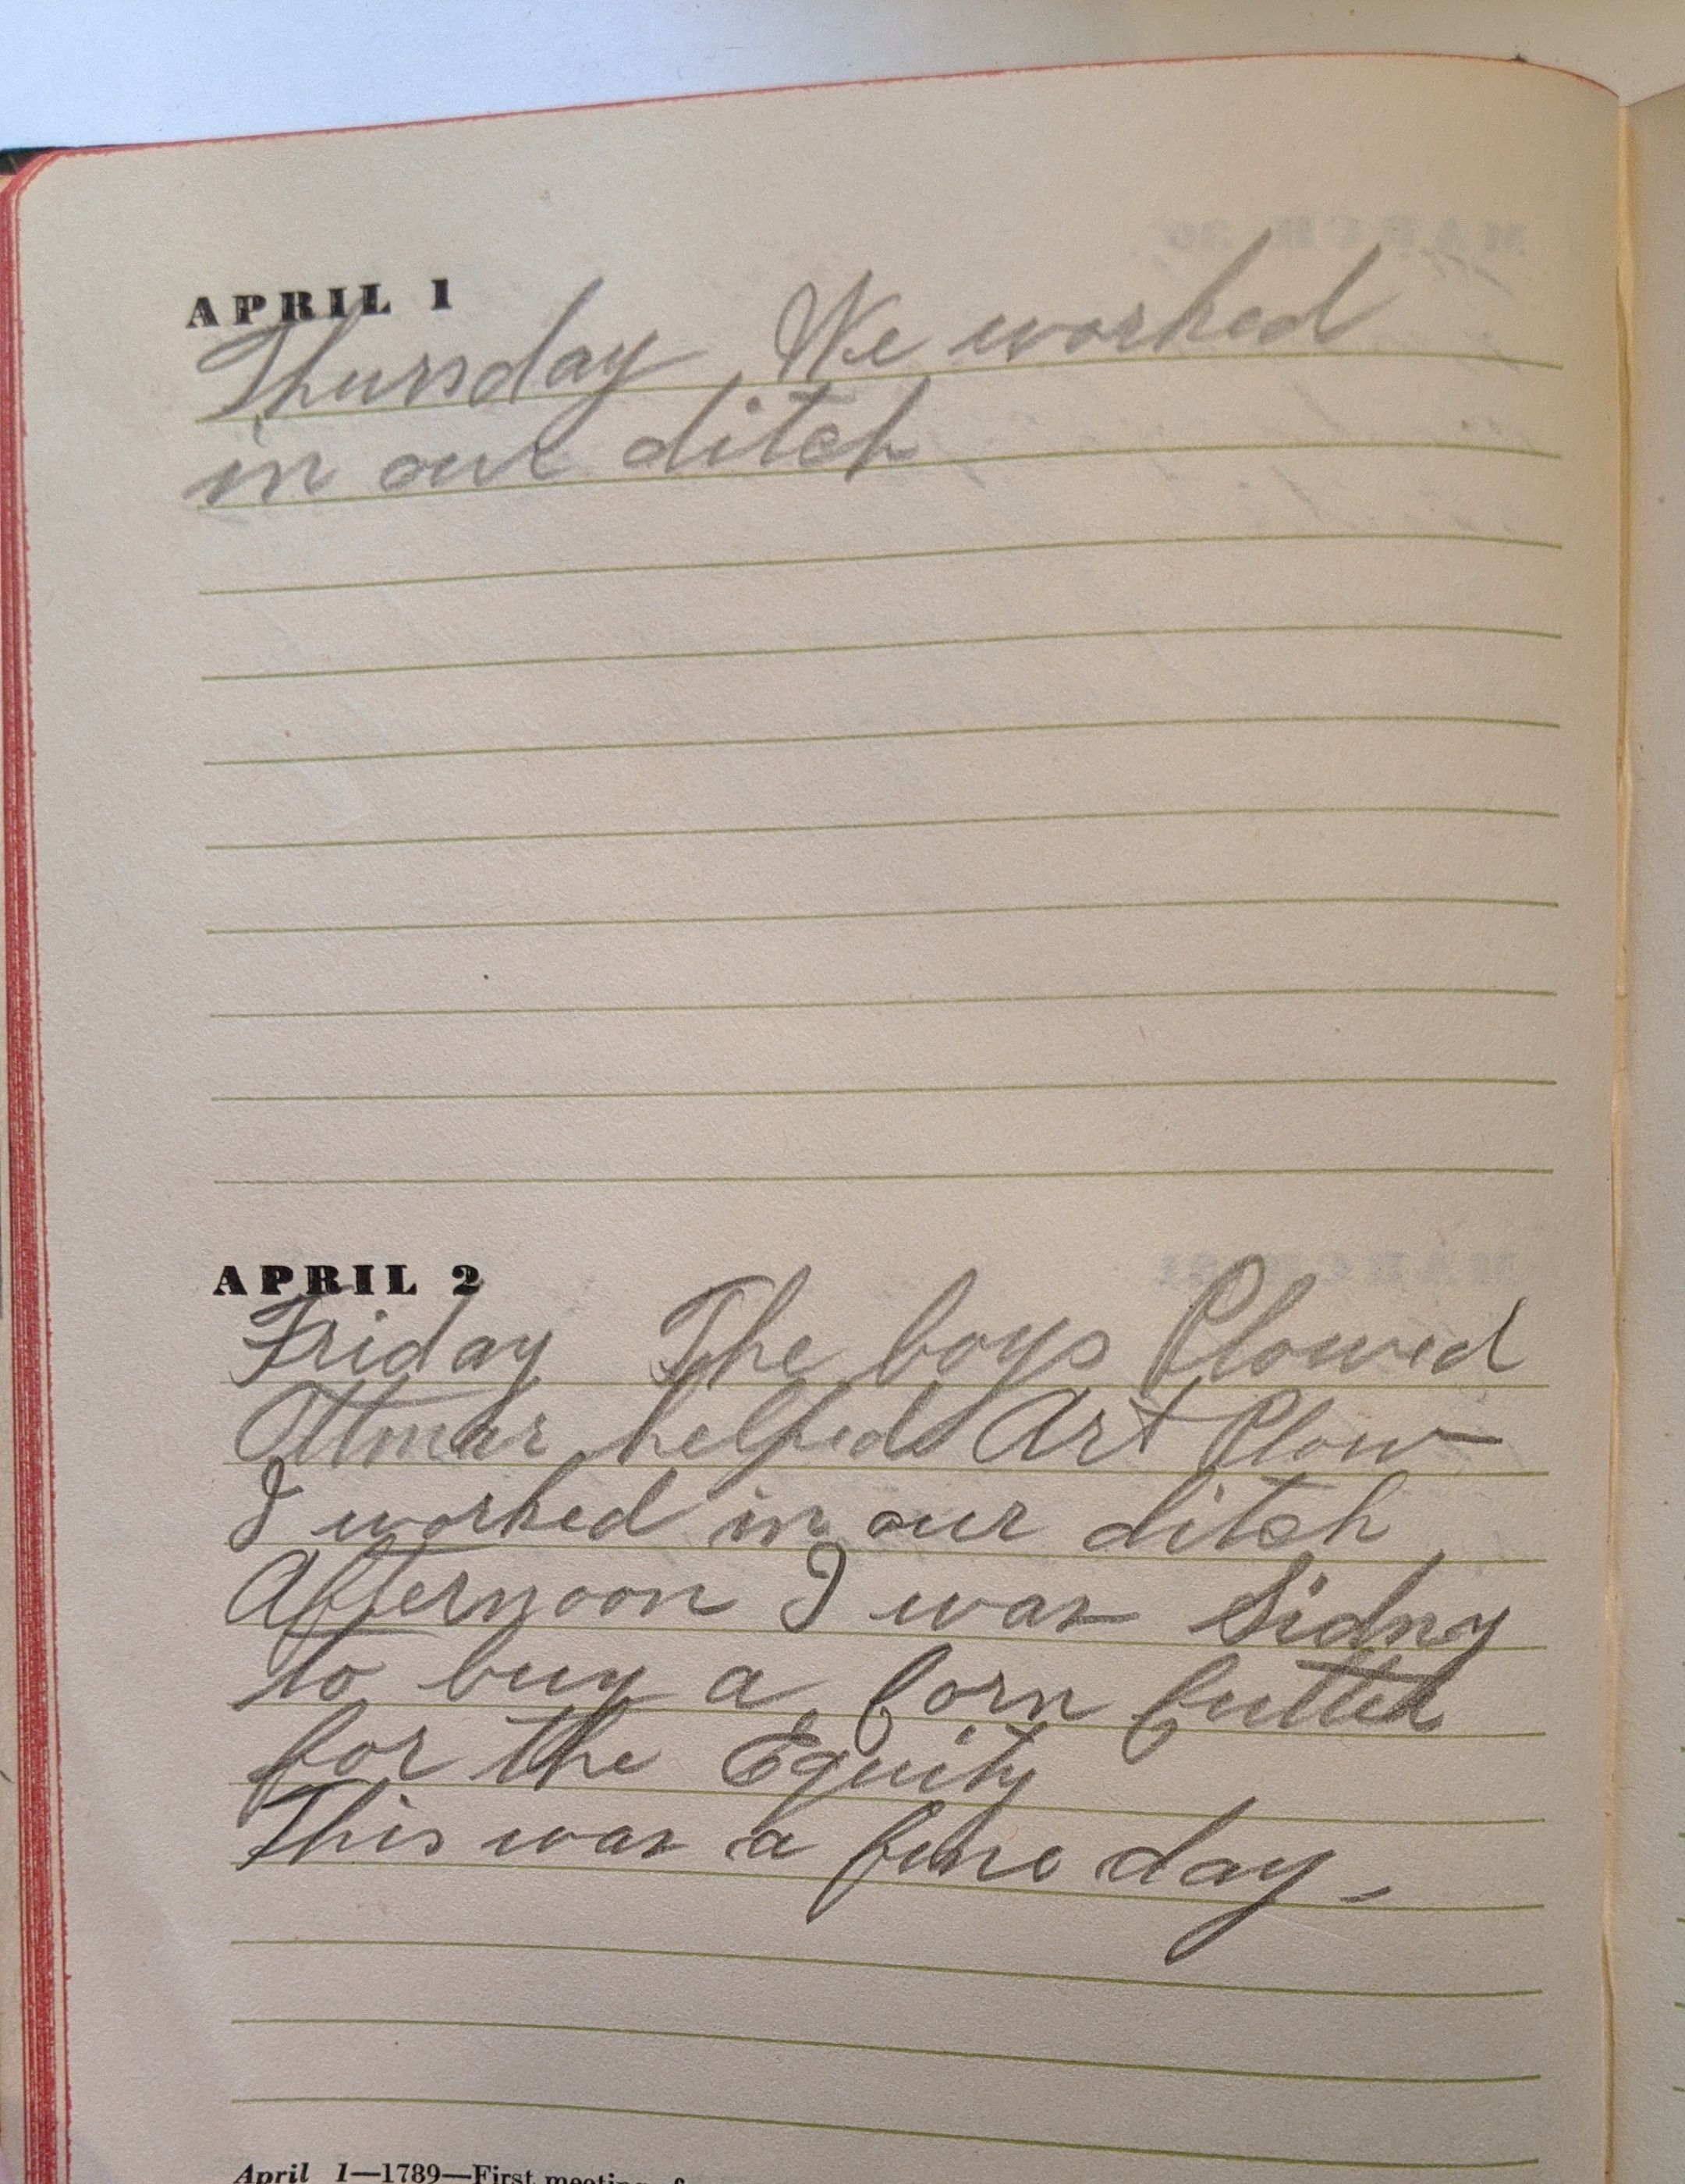 APRIL 1
Thursday We worked
in our ditch
APRIL 2
Friday The boys Plowed
Ottmar helped Art Plow
I worked in our ditch
Afternoon I was Sidny
to buy a Corn Cutter
for the Equity
This was a fine day.
April 1—1789—First meeting